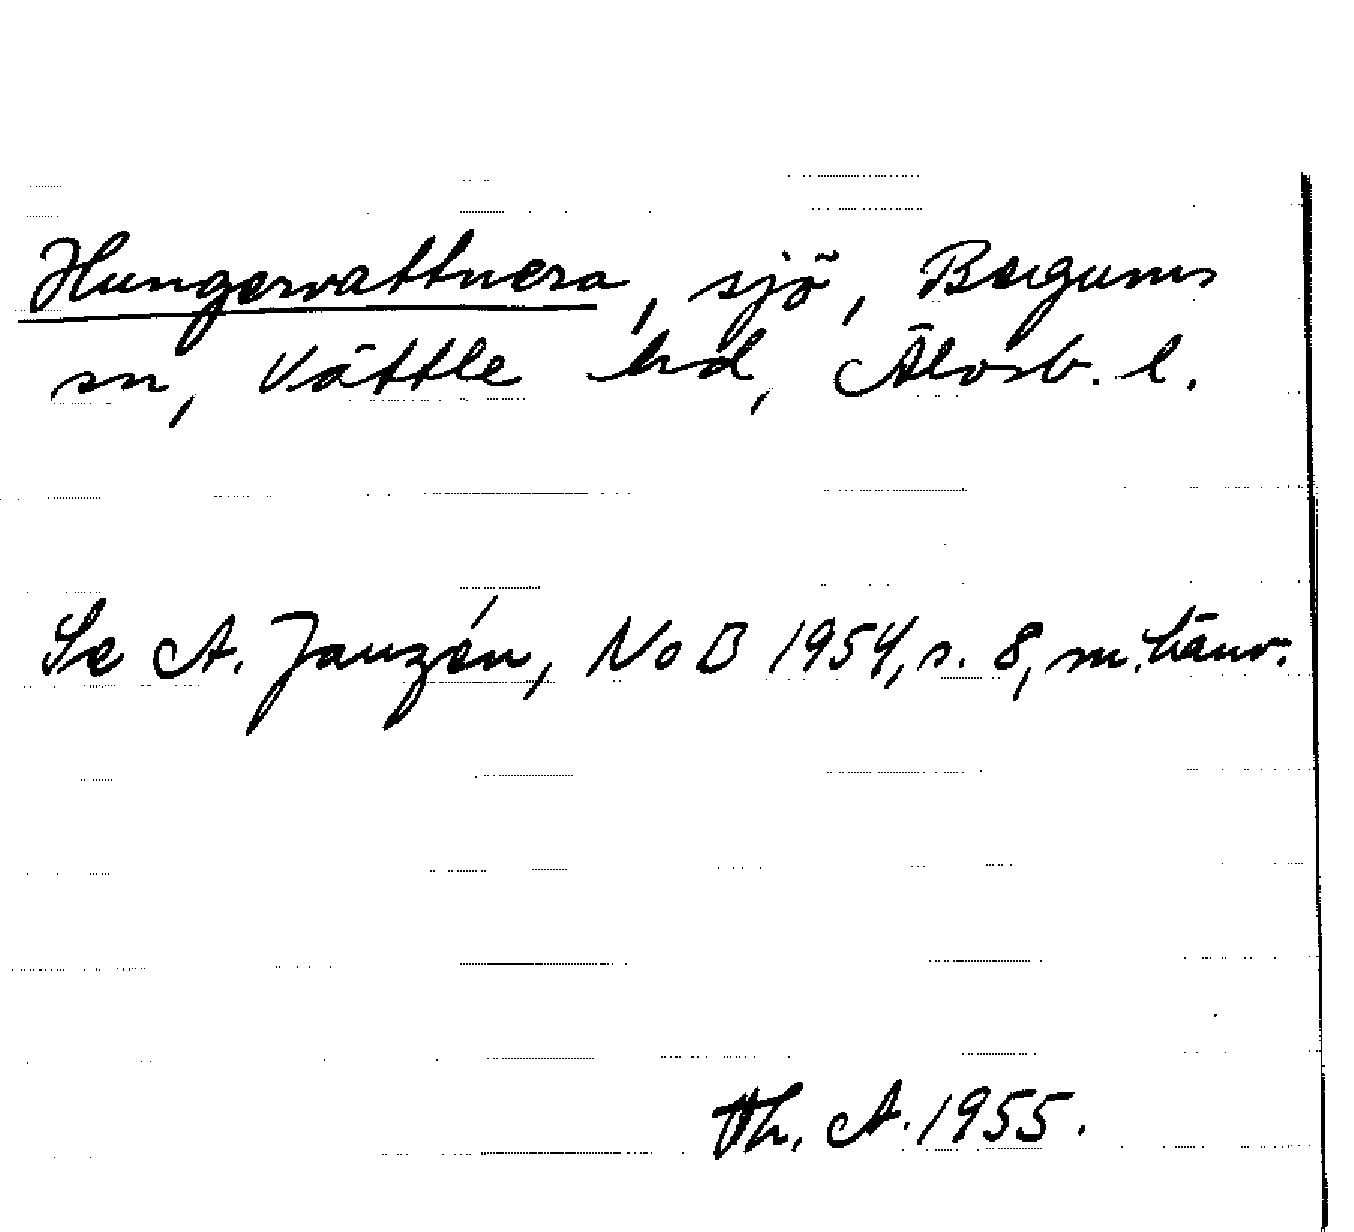 Hungervattnera, sjö, Bergums
sn, Vättle hd, Älvsb. l.
Se A. Janzén, NoB 1954, s. 8, m. hänv.
Th. A. 1955.